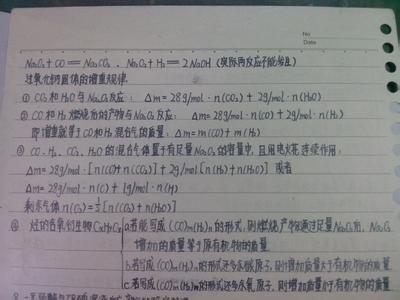 No
Date
Na₂O₂ + CO == Na₂CO₃ 、 Na₂O₂ + H₂ = 2NaOH (实际两反应不能发生)
过氧化钠固体的增重规律.
① CO₂ 和 H₂O 与 Na₂O₂ 反应: Δm = 28g/mol · n(CO₂) + 2g/mol · n(H₂O)
② CO 和 H₂ 燃烧后的产物与 Na₂O₂ 反应: Δm = 28g/mol · n(CO) + 2g/mol · n(H₂)
即增重就等于CO和H₂混合气体的质量: Δm = m(CO) + m(H₂)
③ CO、H₂、CO₂、H₂O的混合气体置于有足量Na₂O₂的容量中, 且用电火花连续作用:
Δm = 28g/mol · [n(CO) + n(CO₂)] + 2g/mol [n(H₂) + n(H₂O)] 或者
Δm = 28g/mol · n(C) + 1g/mol · n(H)
剩余气体 n(O₂) = ½[n(CO₂) + n(H₂O)]
④ 烃的含氧衍生物CxHyOz
a.若能写成(CO)m(H₂)n的形式, 则燃烧产物通过足量Na₂O₂后, Na₂O₂
增加的质量等于原有机物的质量
b.若写成(CO)m(H₂)n的形式还多余碳原子, 则增加质量大于有机物的质量.
c.若写成(CO)m(H₂)n的形式还多余氧原子, 则增加质量小于有机物的质量